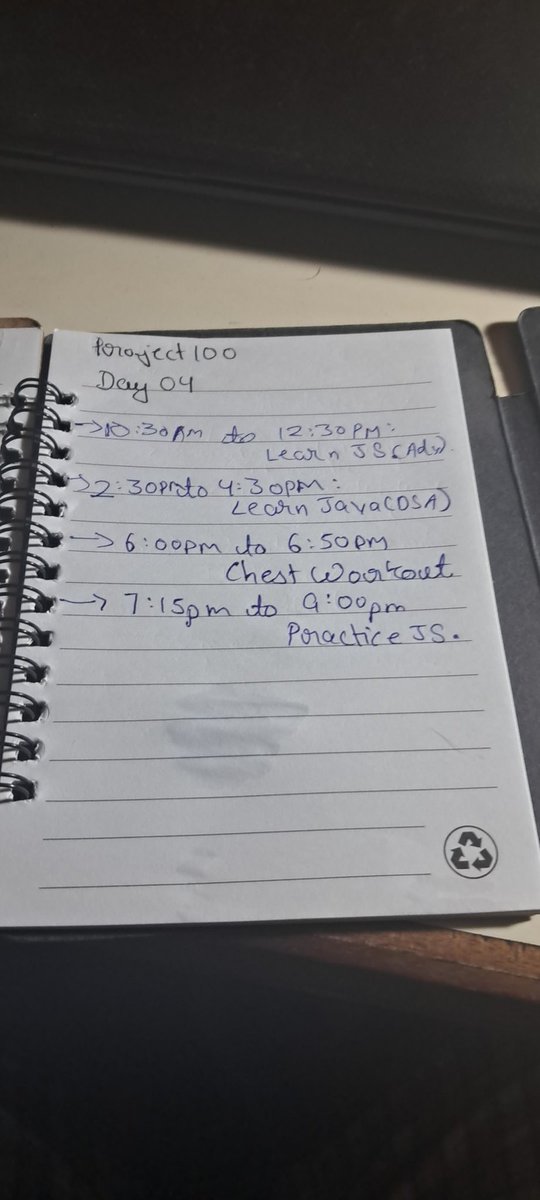 Project 100
Day 04
→ 10:30AM to 12:30PM:
Learn JS (Adv).
→ 2:30PM to 4:30PM:
Learn Java (DSA)
→ 6:00pm to 6:50pm
Chest Workout
→ 7:15pm to 9:00pm
Practice JS.